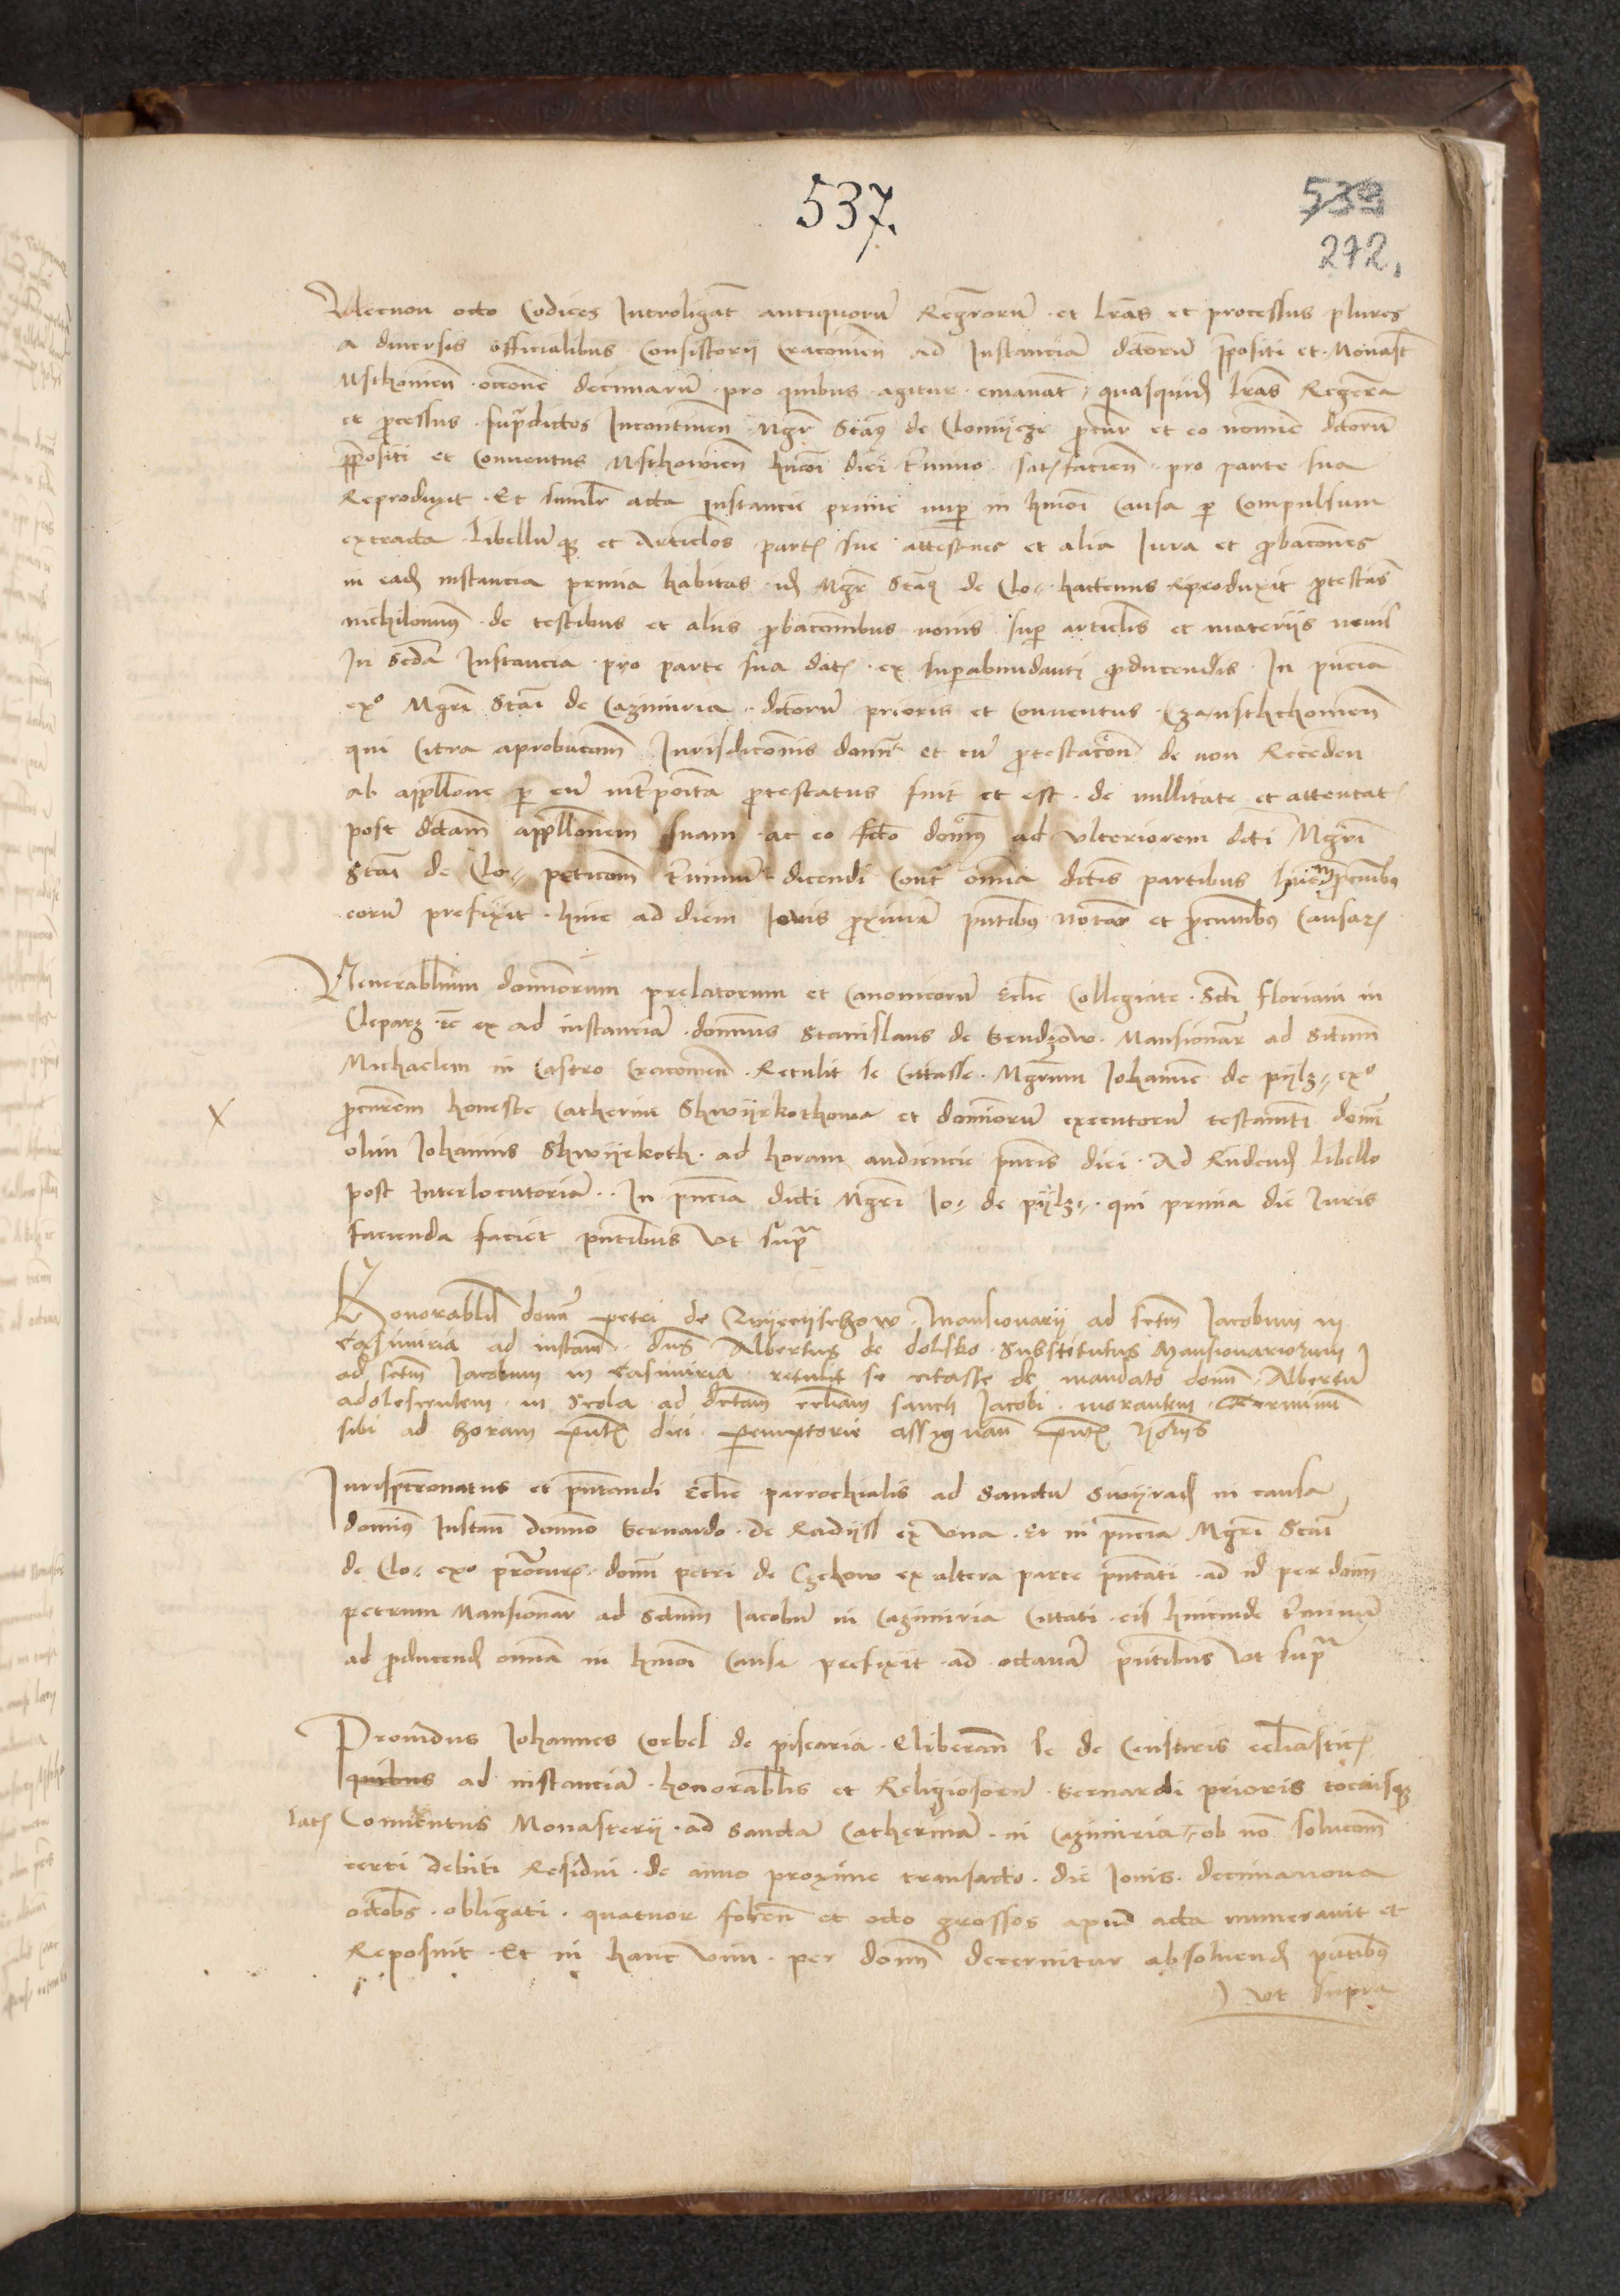 537.
538
272,
Necnon octo Codices Introligat antiquorum Regrorum et lras et processus plures
a diversis officialibus Consistorij Cracovien ad Instanciam dictorum ppositi et Monast
Msthovien occone decimarum pro quibus agitur emanat quasquid lras Regra
et processus supradictos Incontinen Mgr Stas de Clo procur et eo nomine dictorum
ppositi et Conventus Msthovien hmoi diei termino satisfacien pro parte sua
Reproduxit Et similr acta Instancie prime nup in hmoi Causa p Compulsum
extracta Libellumque et Articlos partis sue attestnes et alia Iura et probacones
in eadem instancia prima habitas idem Mgr Stas de Clo hactenus Reproduxit protestas
nichilominus de testibus et aliis probaconibus novis sup articlis et materiis novis
In scda Instancia pro parte sua datis ex supabundanti producendis In pncia
exo Mgri Stai de Cazimiria dictorum prioris et Conventus Czansthchovien
qui Citra aprobacom Iurisdiconis domi et cum protestacon de non Receden
ab appllone p eum interpoita protestatus fuit et est de nullitate et attentat
post dctam appllonem suam ac eo fcto domus ad ulteriorem dicti Mgri
Stai de Clo peticom terminum dicendi Contra omnia dictis partibus
eorum prefixit hinc ad diem Iovis proximam pntibus Notar et procuribus Causarum
Venerabilium dominorum prelatorum et Canonicorum Eclie Collegiate Scti Floriani in
Cleparz etc ex ad instanciam dominus Stanislaus de Gendzow Mansionar ad Sctum
Michaelem in Castro Cracovien Retulit se Cittasse Mgrum Iohannem de pijlz exo
procurem honeste Catherine Shwijrkothowa et dominorum executorum testamti domi
olim Iohannis Shwijrkoth ad horam audiencie pntis diei Ad Redendum Libello
post Interlocutoriam In pncia dicti Mgri Io de pijlz qui prima die Iuris
facienda faciet pntibus Ut supra
X
Honorabilis domi petri de Mansionarij ad sctm Iacobum in
Casimiria ad instam dns Albertus de dolsko Substitutus Mansionariorum
ad sctm Iacobum in Casimiria retulit se citasse de mandato domi Albertum
adolescentem in Scola ad dctam ecliam sancti Jacobi morantem terminum
sibi ad horam pntis diei peremptorie assignan pntis
Iurispatronatus et pntandi Eclie parrochialis ad Sanctum Swijrad in causa
dominus Instan domino Bernardo de Radijss ex Una Et in pncia Mgri Stai
de Clo exo procuris domi petri de Czchow ex altera parte pntati ad id per domi
petrum Mansionar ad Sctum Iacobum in Cazimiria Cittati eis hincinde terminum
ad producend omnia in hmoi Causa prefixit ad octavam pntibus Ut supra
Providus Iohannes Corbel de piscaria Eliberan se de Censuris ecliasticis
quibus ad instanciam honorabilis et Religiosorum Bernardi prioris tociusque
lat Conventus Monasterij ad Sanctam Catherinam in Cazimiria ob non solucom
certi debiti Residui de anno proxime transacto die Iovis decimanova
octobris obligati quatuor floren et octo grossos apud acta numeravit et
Reposuit Et in hanc Vim per domi decernitur absolvend pntibus
Ut supra